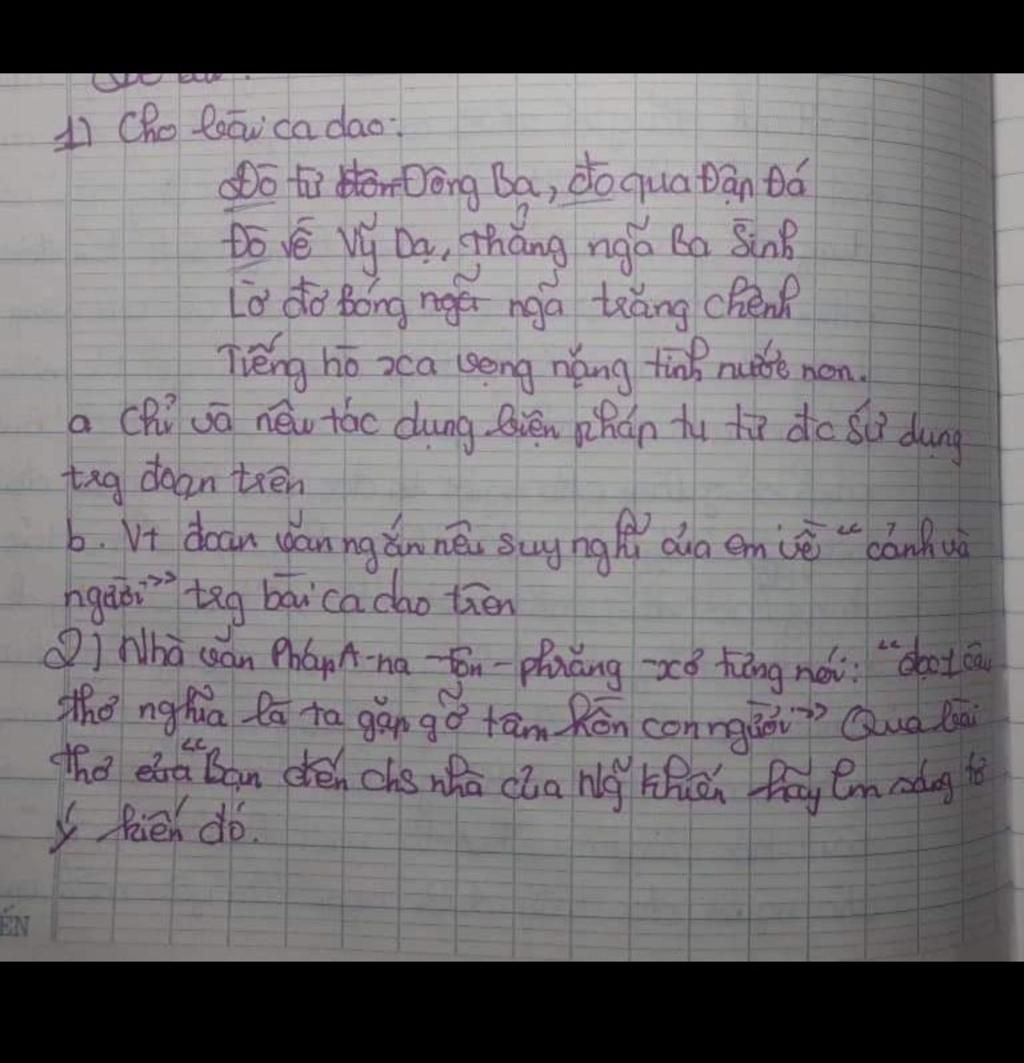 1) Cho bài ca dao:
Đò từ Đông Ba, đò qua Đập Đá
Đò về Vỹ Dạ, thẳng ngã Ba Sình
Lờ đờ bóng ngã trăng chênh
Tiếng hò xa vọng nặng tình nước non.
a Chỉ và nêu tác dụng biện pháp tu từ đc sử dụng
trg đoạn trên
b. Vt đoạn văn ngắn nêu suy nghĩ của em về "cảnh và
người" trg bài ca dao trên
2) Nhà văn Pháp A-na-tôn-phrăng-xơ từng nói: "đọc 1 câu
thơ nghĩa là ta gặp gỡ tâm hồn con người" Qua bài
thơ "Bạn đến chs nhà của Ng Khiến hãy em sáng tỏ
ý kiến đó.
ẾN